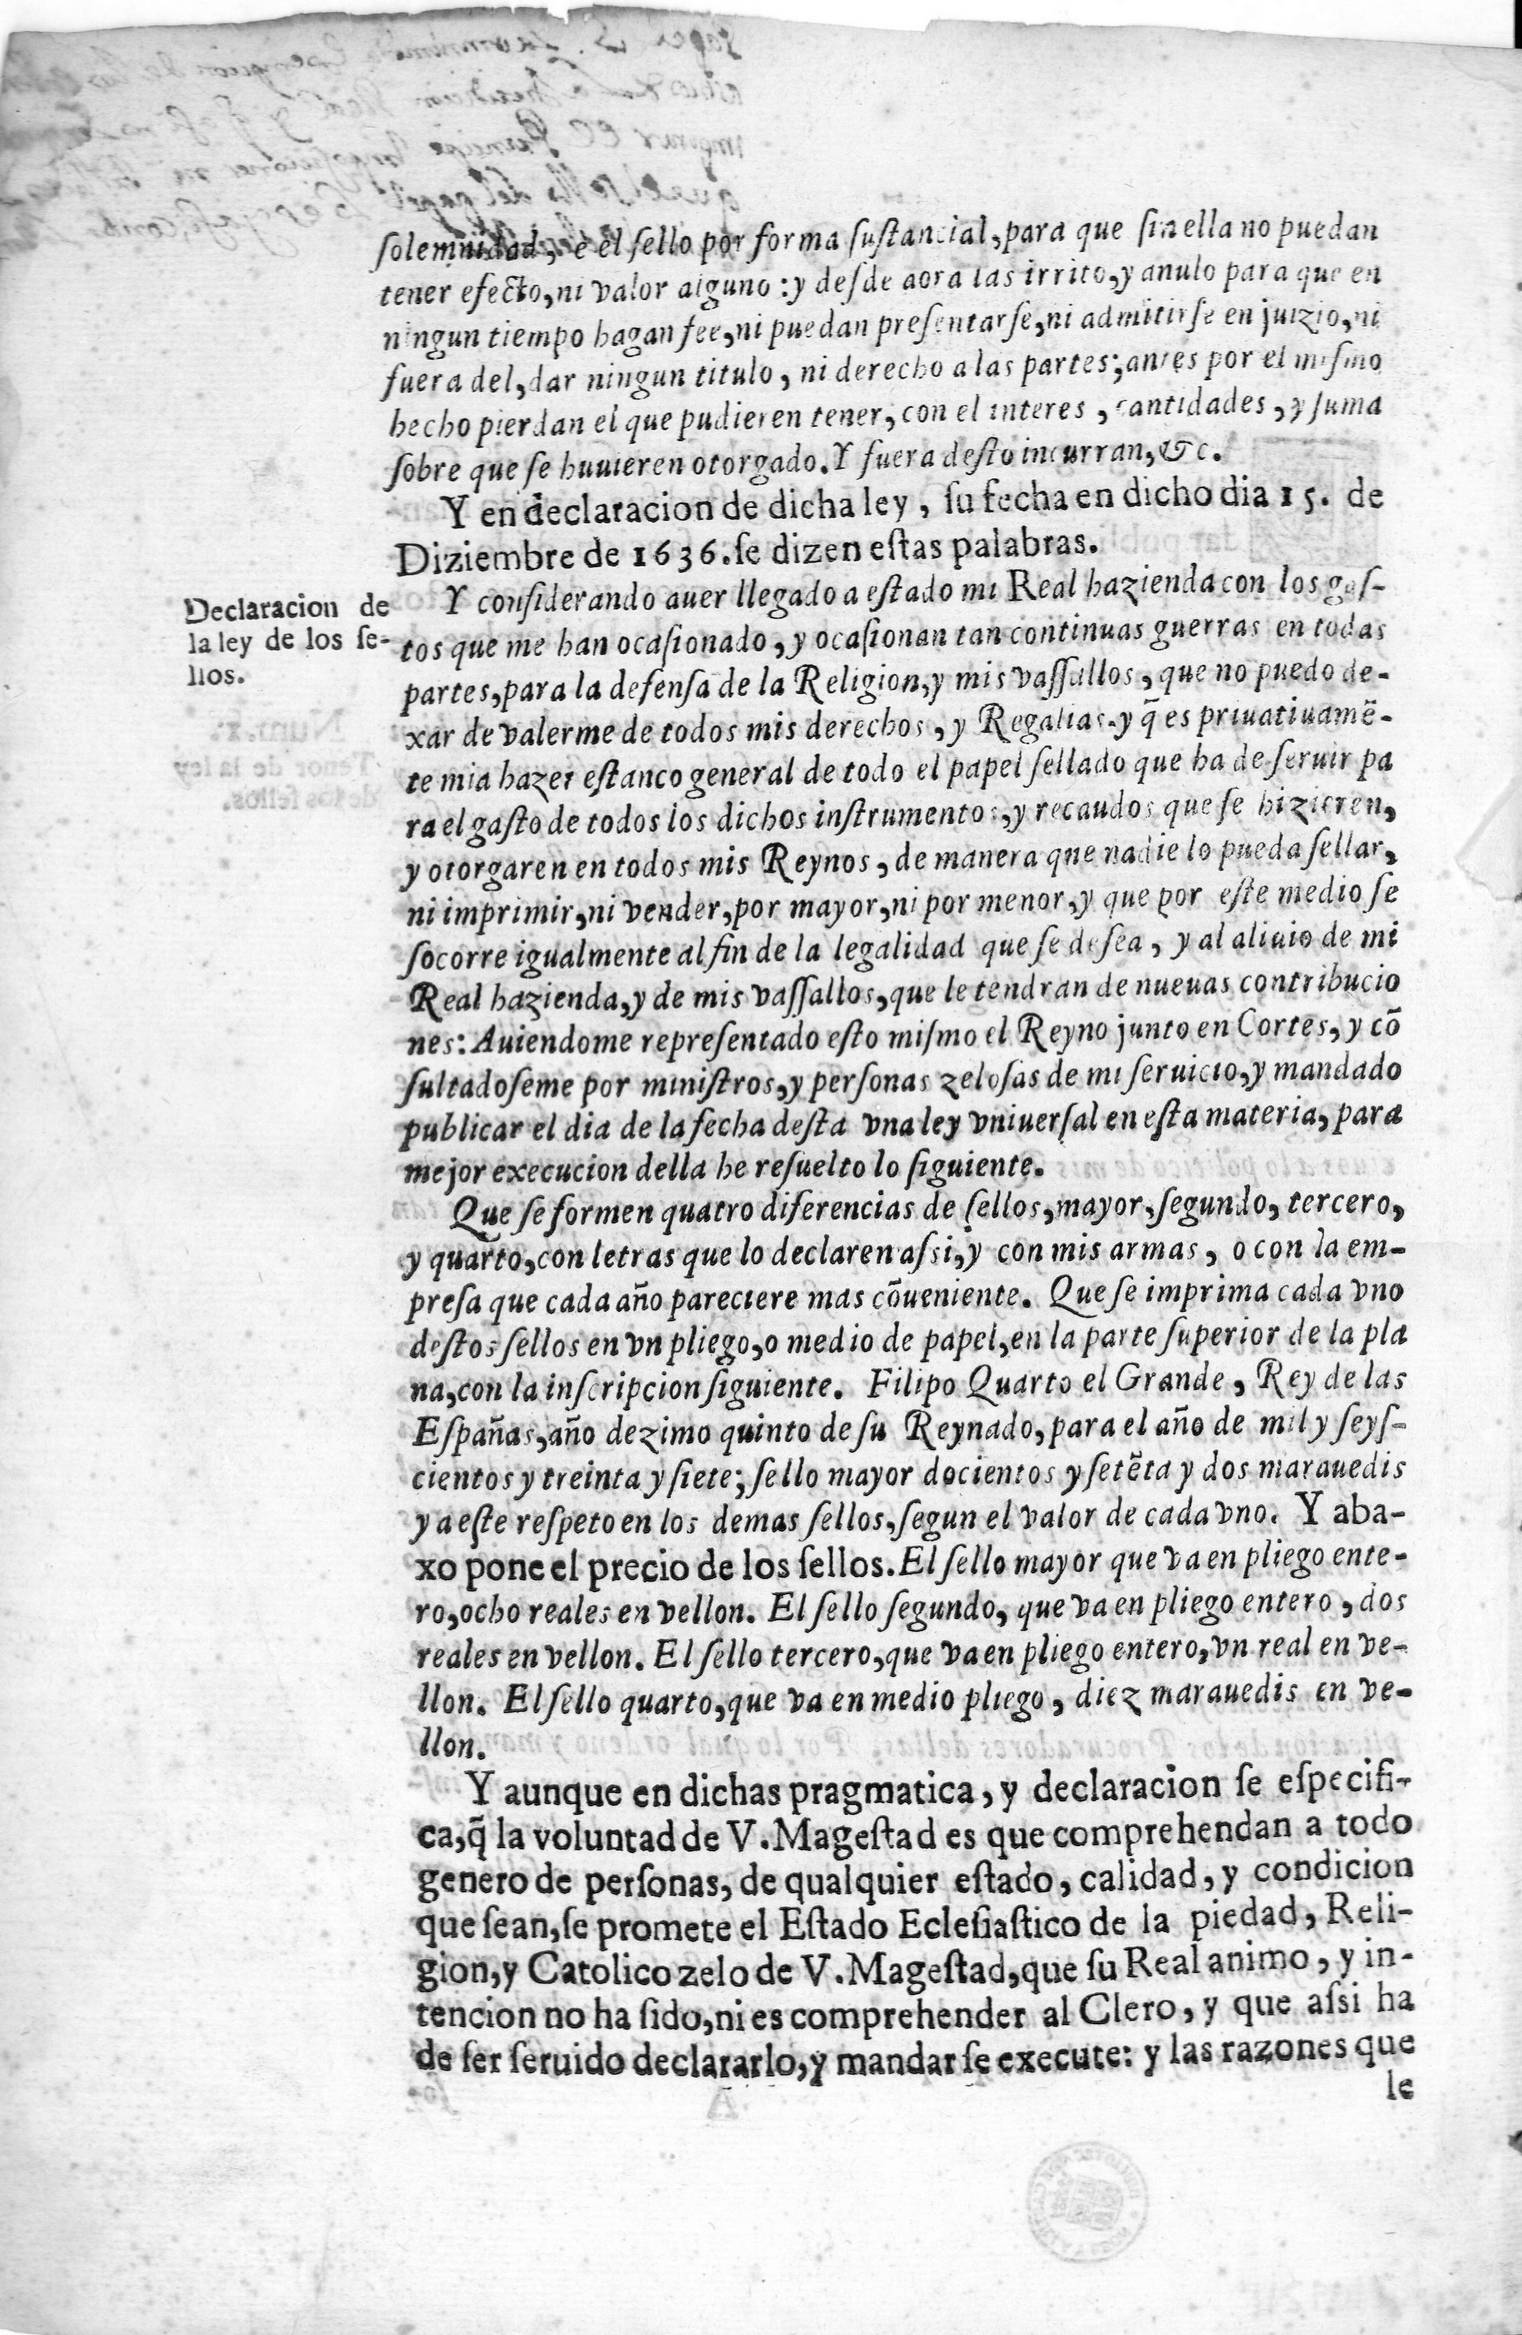 solemnidad, e el sello por forma sustancial, para que sin ella no puedan
tener efecto, ni valor alguno: y desde aora las irrito, y anulo para que en
ningun tiempo hagan fee, ni puedan presentarse, ni admitirse en juizio, ni
fuera del, dar ningun titulo, ni derecho a las partes; antes por el mismo
hecho pierdan el que pudieren tener, con el interes, cantidades, y suma
sobre que se huuieren otorgado. Y fuera desto incurran, &c.
Y en declaracion de dicha ley, su fecha en dicho dia 15. de
Diziembre de 1636. se dizen estas palabras.
Declaracion de
la ley de los se-
llos.
Y considerando auer llegado a estado mi Real hazienda con los gas-
tos que me han ocasionado, y ocasionan tan continuas guerras en todas
partes, para la defensa de la Religion, y mis vassallos, que no puedo de-
xar de valerme de todos mis derechos, y Regalias. y q̃ es priuatiuamẽ-
te mia hazer estanco general de todo el papel sellado que ha de seruir pa
ra el gasto de todos los dichos instrumentos, y recaudos que se hizieren,
y otorgaren en todos mis Reynos, de manera que nadie lo pueda sellar,
ni imprimir, ni vender, por mayor, ni por menor, y que por este medio se
socorre igualmente al fin de la legalidad que se desea, y al aliuio de mi
Real hazienda, y de mis vassallos, que le tendran de nueuas contribucio
nes: Auiendome representado esto mismo el Reyno junto en Cortes, y cõ
sultadoseme por ministros, y personas zelosas de mi seruicio, y mandado
publicar el dia de la fecha desta vna ley vniuersal en esta materia, para
mejor execucion della he resuelto lo siguiente.
Que se formen quatro diferencias de sellos, mayor, segundo, tercero,
y quarto, con letras que lo declaren assi, y con mis armas, o con la em-
presa que cada año pareciere mas cõueniente. Que se imprima cada vno
destos sellos en vn pliego, o medio de papel, en la parte superior de la pla
na, con la inscripcion siguiente. Filipo Quarto el Grande, Rey de las
Españas, año dezimo quinto de su Reynado, para el año de mil y seys-
cientos y treinta y siete; sello mayor docientos y setẽta y dos marauedis
y a este respeto en los demas sellos, segun el valor de cada vno. Y aba-
xo pone el precio de los sellos. El sello mayor que va en pliego ente-
ro, ocho reales en vellon. El sello segundo, que va en pliego entero, dos
reales en vellon. El sello tercero, que va en pliego entero, vn real en ve-
llon. El sello quarto, que va en medio pliego, diez marauedis en ve-
llon.
Y aunque en dichas pragmatica, y declaracion se especifi-
ca, q̃ la voluntad de V. Magestad es que comprehendan a todo
genero de personas, de qualquier estado, calidad, y condicion
que sean, se promete el Estado Eclesiastico de la piedad, Reli-
gion, y Catolico zelo de V. Magestad, que su Real animo, y in-
tencion no ha sido, ni es comprehender al Clero, y que assi ha
de ser seruido declararlo, y mandar se execute: y las razones que
le